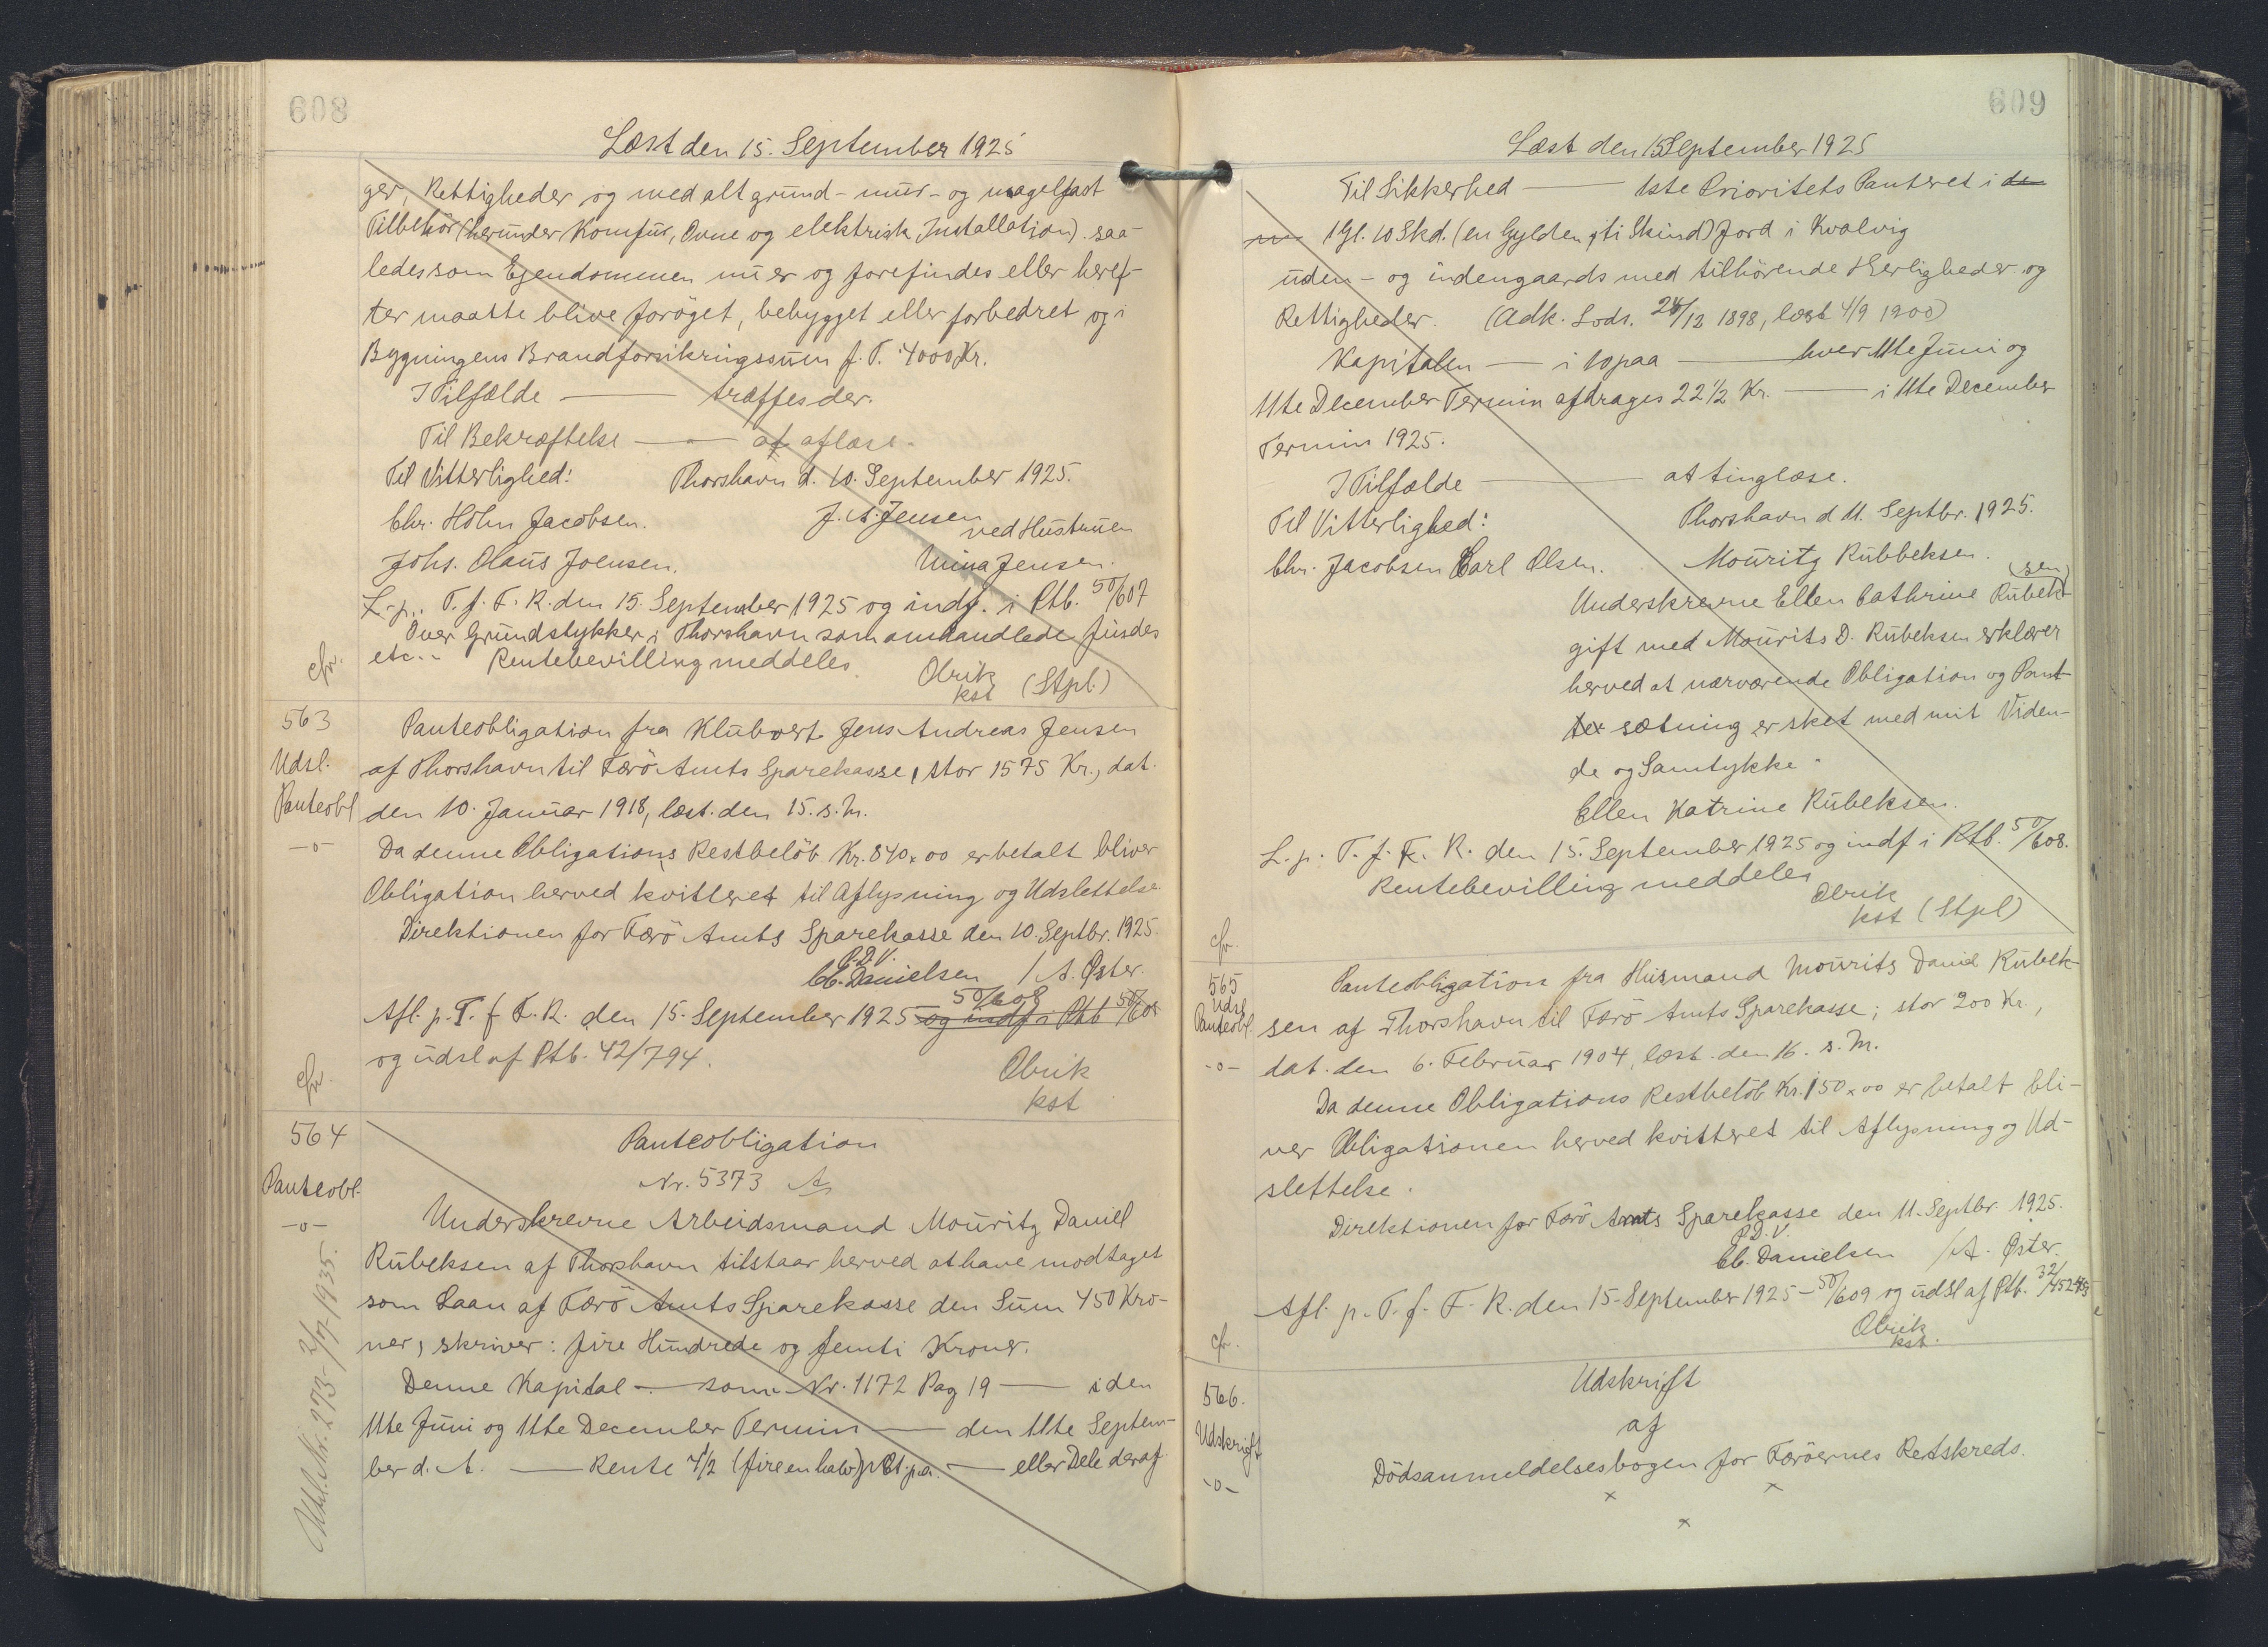 608
Læst den 15. September 1925
ger, Rettigheder og med alt grund- mur- og nagelfast
Tilbehör (herunder Komfur, Ovne og elektrisk Installation) saa-
ledes som Ejendommen nu er og forefindes eller heref-
ter maatte blive foröget, bebygget eller forbedret og i
Bygningens Brandforsikringssum f. T. 4000 Kr.
I Tilfælde — træffes der.
Til Bekræftelse — at aflæse.
Til Vitterlighed: Thorshavn d. 10. September 1925.
Chr. Holm Jacobsen. J. A. Jensen
ved Hustruen
Johs. Olaus Joensen. Mina Jensen.
L. p. T. f. F. R. den 15. September 1925 og indf. i Ptb. 50/607
Over Grundstykker i Thorshavn som omhandlede findes
cfr. etc.. Rentebevilling meddeles.
Olrik
kst (Stpl.)
563
Udsl.
Panteobl
-o-
Panteobligation fra Klubvært Jens Andreas Jensen
af Thorshavn til Færö Amts Sparekasse, stor 1575 Kr., dat.
den 10. Januar 1918, læst. den 15. s. M.
Da denne Obligations Restbelöb Kr. 840 x 00 er betalt bliver
Obligation herved kvitteret til Aflysning og Udslettelse.
Direktionen for Færö Amts Sparekasse den 10. Septbr. 1925.
P.D.V.
Cb. Danielsen / A. Øster.
50/608
Afl. p. T. f. F. R. den 15. September 1925 og indf i Ptb 50/608
og udsl af Ptb. 42/794.
cfr.
Olrik
kst
564
Panteobl.
-o-
Panteobligation
Nr. 5373 A
Underskrevne Arbeidsmand Mouritz Daniel
Rubeksen af Thorshavn tilstaar herved at have modtaget
som Laan af Færö Amts Sparekasse den Sum 450 Kro-
ner, skriver: fire Hundrede og femti Kroner.
Denne Kapital — som Nr. 1172 Pag 19 — i den
11te Juni og 11te December Termin — den 11te Septem-
ber d. A. — Rente 4½ (fire en halv) pCt. p.a. — eller Dele deraf
Udsl. Nr. 273 - 2/7 1935.
609
Læst den 15 September 1925
Til Sikkerhed — 1ste Prioritets Panteret i de
1 Gl. 10 Skd. (en Gylden, ti Skind) Jord i Kvalvig
uden- og indengaards med tilhörende Herligheder og
Rettigheder. (Adk. Lods. 24/12 1898, læst 4/9 1900)
Kapitalen — i 10 paa — hver 11te Juni og
11te December Termin afdrages 22½ Kr. — i 11te December
Termin 1925.
I Tilfælde — at tinglæse.
Til Vitterlighed: Thorshavn d 11. Septbr. 1925.
Chr. Jacobsen Carl Olsen. Mouritz Rubbeksen.
Underskrevne Ellen Cathrine Rubek(sen)
gift med Mourits D. Rubeksen erklærer
herved at nærværende Obligation og Pant
sætning er sket med mit Viden-
de og Samtykke.
Ellen Katrine Rubeksen.
L. p. T. f. F. R. den 15. September 1925 og indf i Ptb. 50/608.
Rentebevilling meddeles
Olrik
kst (Stpl)
cfr.
565
Udsl
Panteobl.
-o-
Panteobligation fra Husmand Mourits David Rubek-
sen af Thorshavn til Færö Amts Sparekasse; stor 200 Kr.,
dat. den 6. Februar 1904, læst. den 16. s. M.
Da denne Obligations Restbelöb Kr. 150 x 00 er betalt bli-
ver Obligationen herved kvitteret til Aflysning og Ud-
slettelse.
Direktionen for Færö Amts Sparekasse den 11. Septbr. 1925.
P.D.V.
Cb. Danielsen / A. Øster.
Afl. p. T. f. F. R. den 15. September 1925 - 50/609 og udsl af Ptb. 32/452
Olrik
kst.
cfr.
566.
Udskrift
-o-
Udskrift
af
Dödsanmeldelsesbogen for Færöernes Retskreds.
x x
x